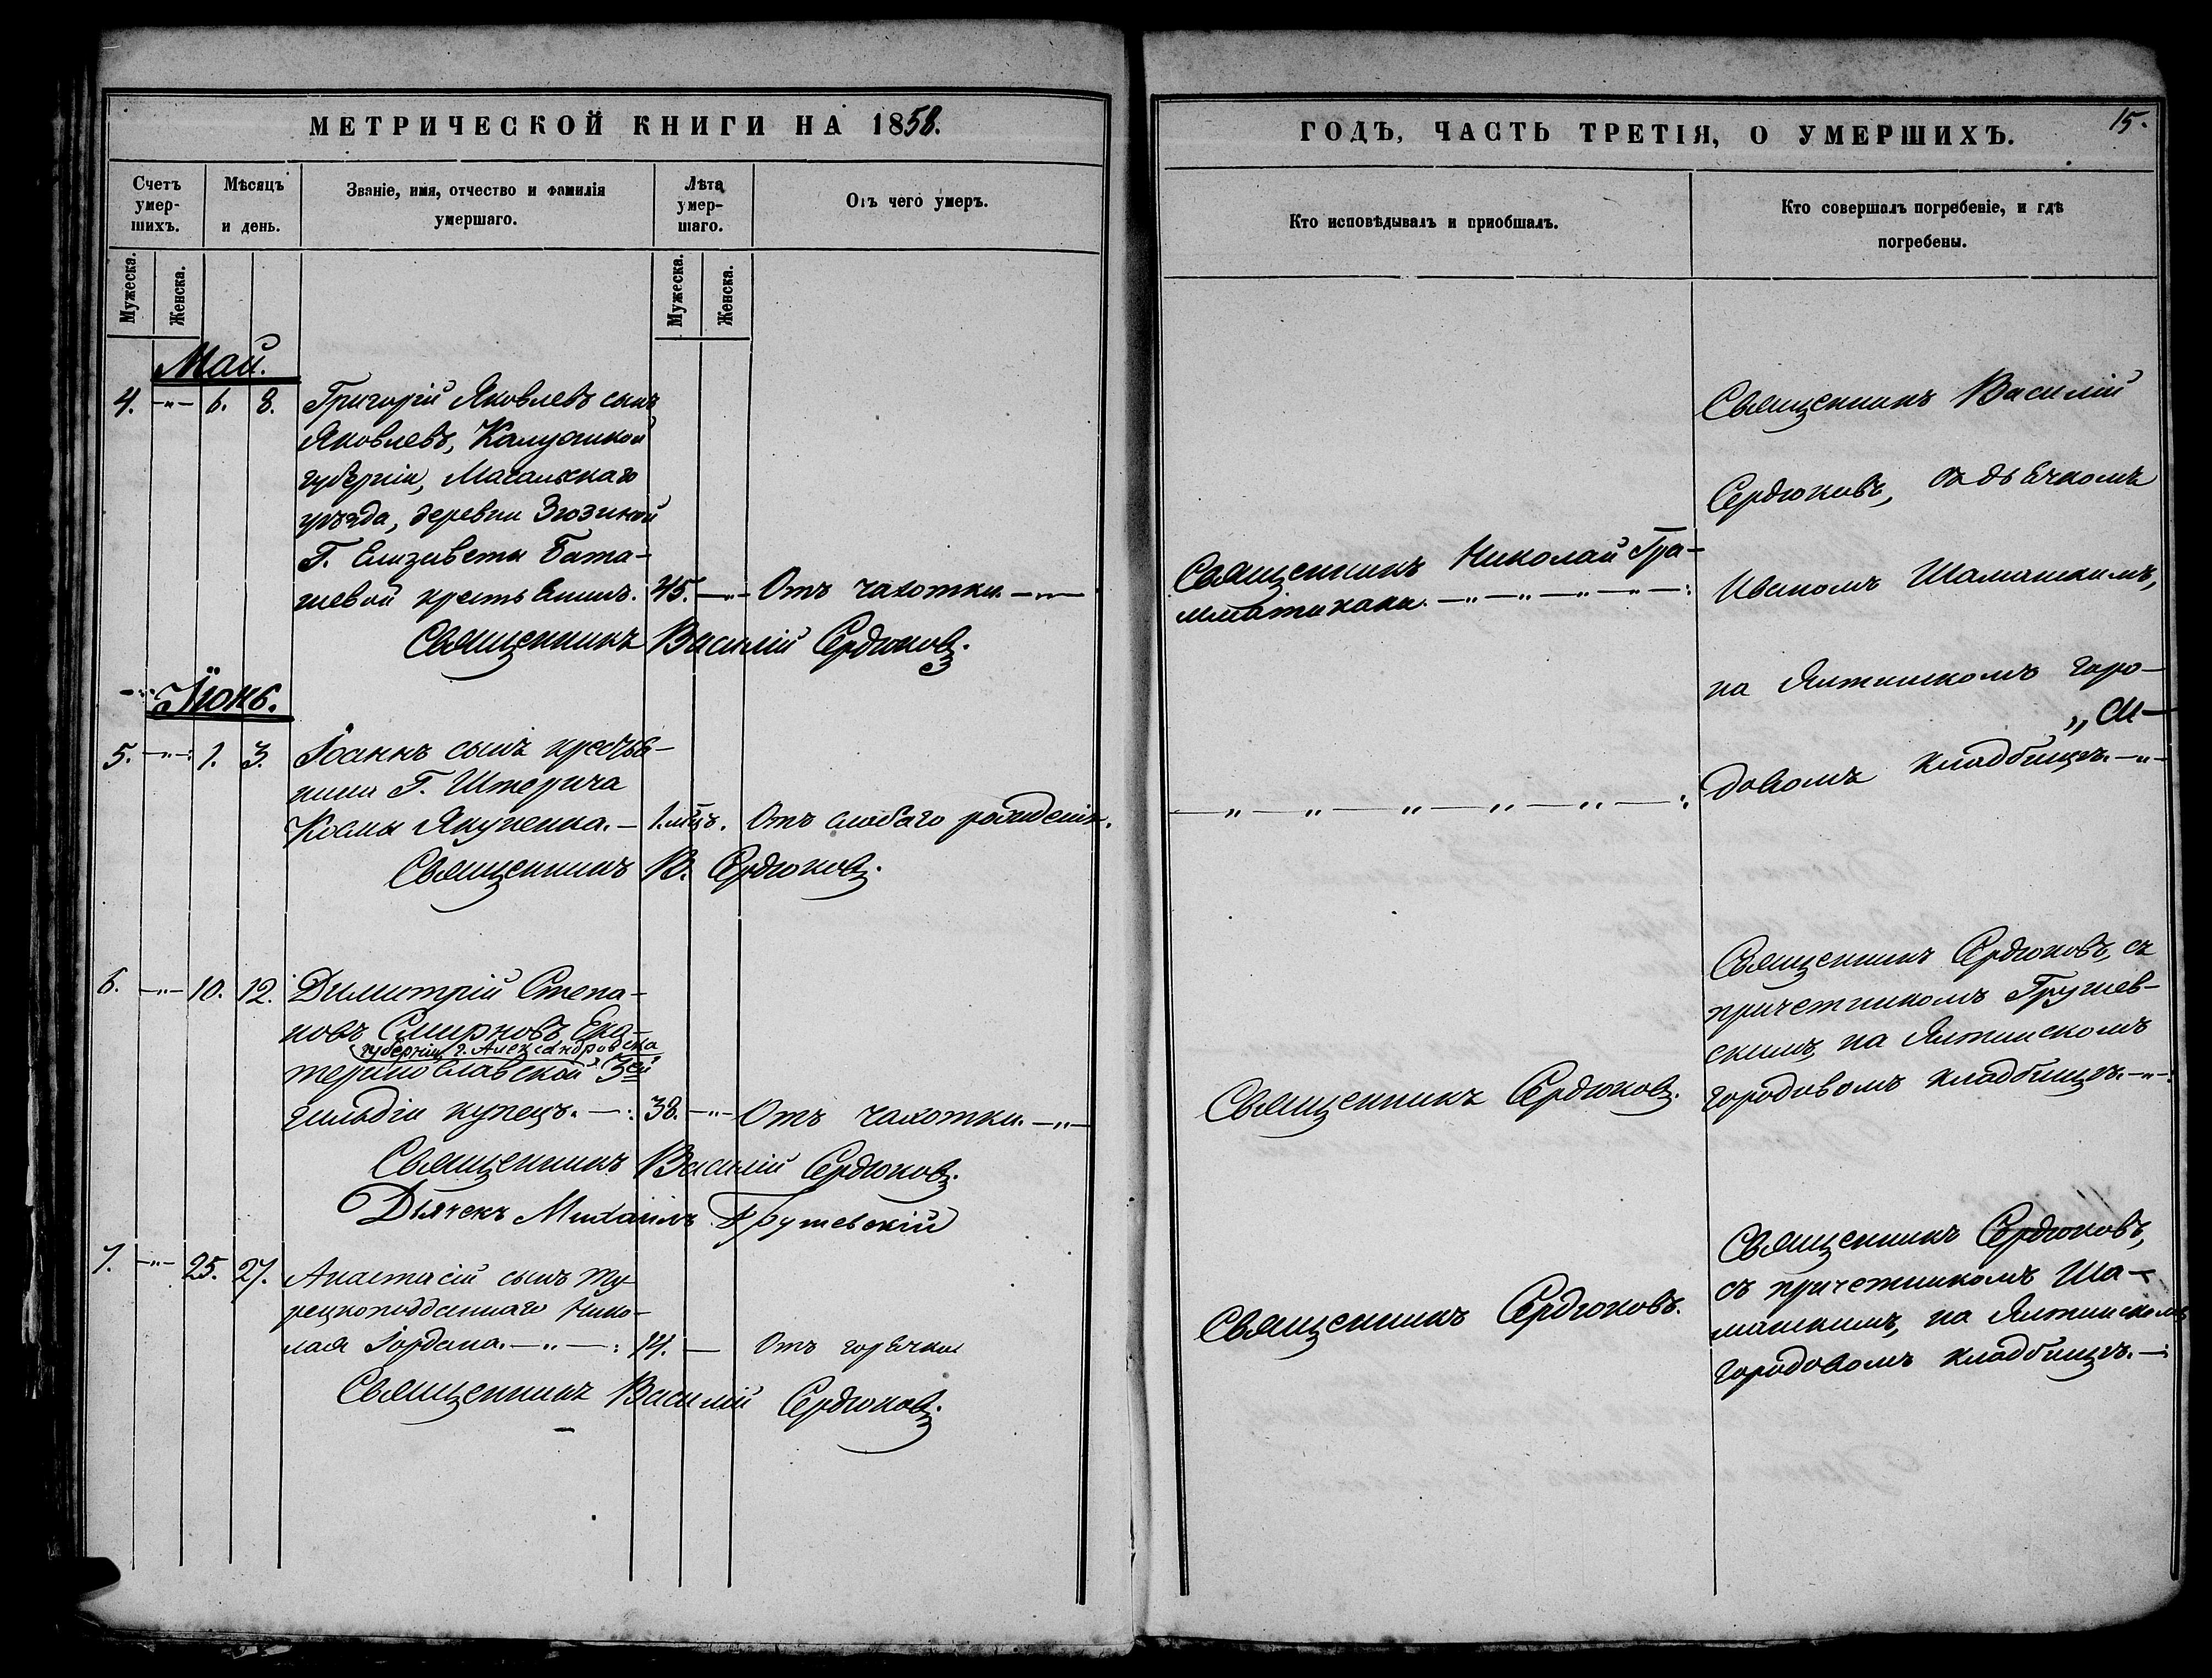 МЕТРИЧЕСКОЙ КНИГИ НА 1858.
Счетъ умер-шихъ.
Мѣсяцъ и день.
Званіе, имя, отчество и фамилія умершаго.
Лѣта умер-шаго.
Отъ чего умеръ.
Мужеска.
Женска.
Мужеска.
Женска.
Май.
4. —„— 6. 8. Григорій Яковлевъ сынъ
Яковлевъ, Калужской
губерніи, Масальскаго
уѣзда, деревни
Г. Елизаветы Бата-
шевой крестьянинъ. 45. —„— Отъ чахотки. —„—
Священникъ Василій Сердюковъ.
Іюнь.
5. —„—: 1. 3. Іоаннъ сынъ крестья-
нина Г. Штерича
Космы Якупенка. — 1. мцъ. Отъ слабаго рожденія.
Священникъ В. Сердюковъ.
6. —„— 10. 12. Димитрій Степа-
новъ Смирновъ, Ека-
губерніи, г. Александровска
теринославской 3ей
гильдіи купецъ. —: 38. —„— Отъ чахотки. —„—
Священникъ Василій Сердюковъ.
Дьячекъ Михаилъ Грушевскій
7. —„— 25. 27. Анастасій сынъ Ту-
рецкоподданнаго Нико-
лая Іордана. —„—: 14. — Отъ горячки
Священникъ Василій Сердюковъ.
ГОДЪ, ЧАСТЬ ТРЕТІЯ, О УМЕРШИХЪ.
15.
Кто исповѣдывалъ и приобщалъ.
Кто совершалъ погребеніе, и гдѣ погребены.
Священникъ Николай Гра-
мматикаки. —„—„—„—„—:
—„—„—„—„—„—:
Священникъ Сердюковъ.
Священникъ Сердюковъ.
Священникъ Василій
Сердюковъ, съ дьячкомъ
Иваномъ Шаманскимъ,
на Ялтинскомъ горо-
довомъ кладбищѣ. —„—
Священникъ Сердюковъ, съ
причетникомъ Грушев-
скимъ, на Ялтинскомъ
городовомъ кладбищѣ. —„—
Священникъ Сердюковъ,
съ причетникомъ Ша-
манскимъ, на Ялтинскомъ
городовомъ кладбищѣ. —: